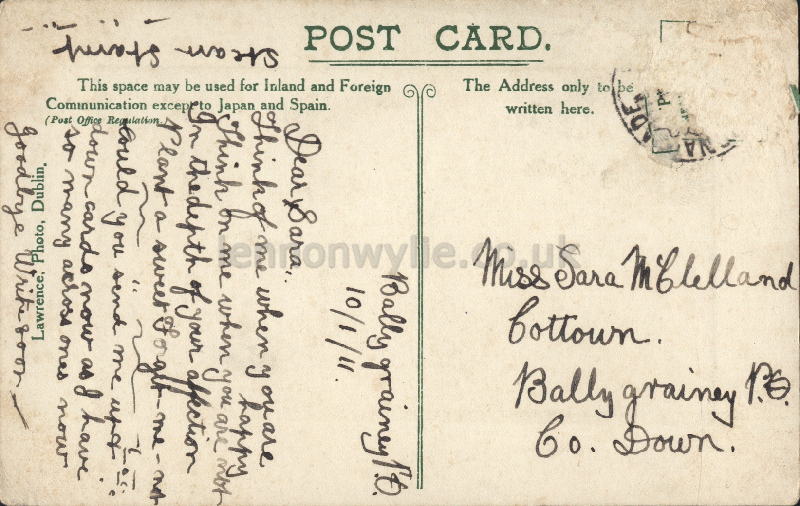 POST CARD.
This space may be used for Inland and Foreign
Communication except to Japan and Spain.
(Post Office Regulation.)
The Address only to be
written here.
Steam Stamp
Ballygrainey P.O.
10/1/11.
Dear Sara,
Think of me when you are
happy
Think on me when you are not
In the depth of your affection
Plant a sweet Forget-me-not
Could you send me up &
down cards now as I have
so many across ones now
Goodbye Write soon
Lawrence, Photo, Dublin.
Miss Sara McClelland
Cottown.
Ballygrainey P.O.
Co. Down.
lennonwylie.co.uk